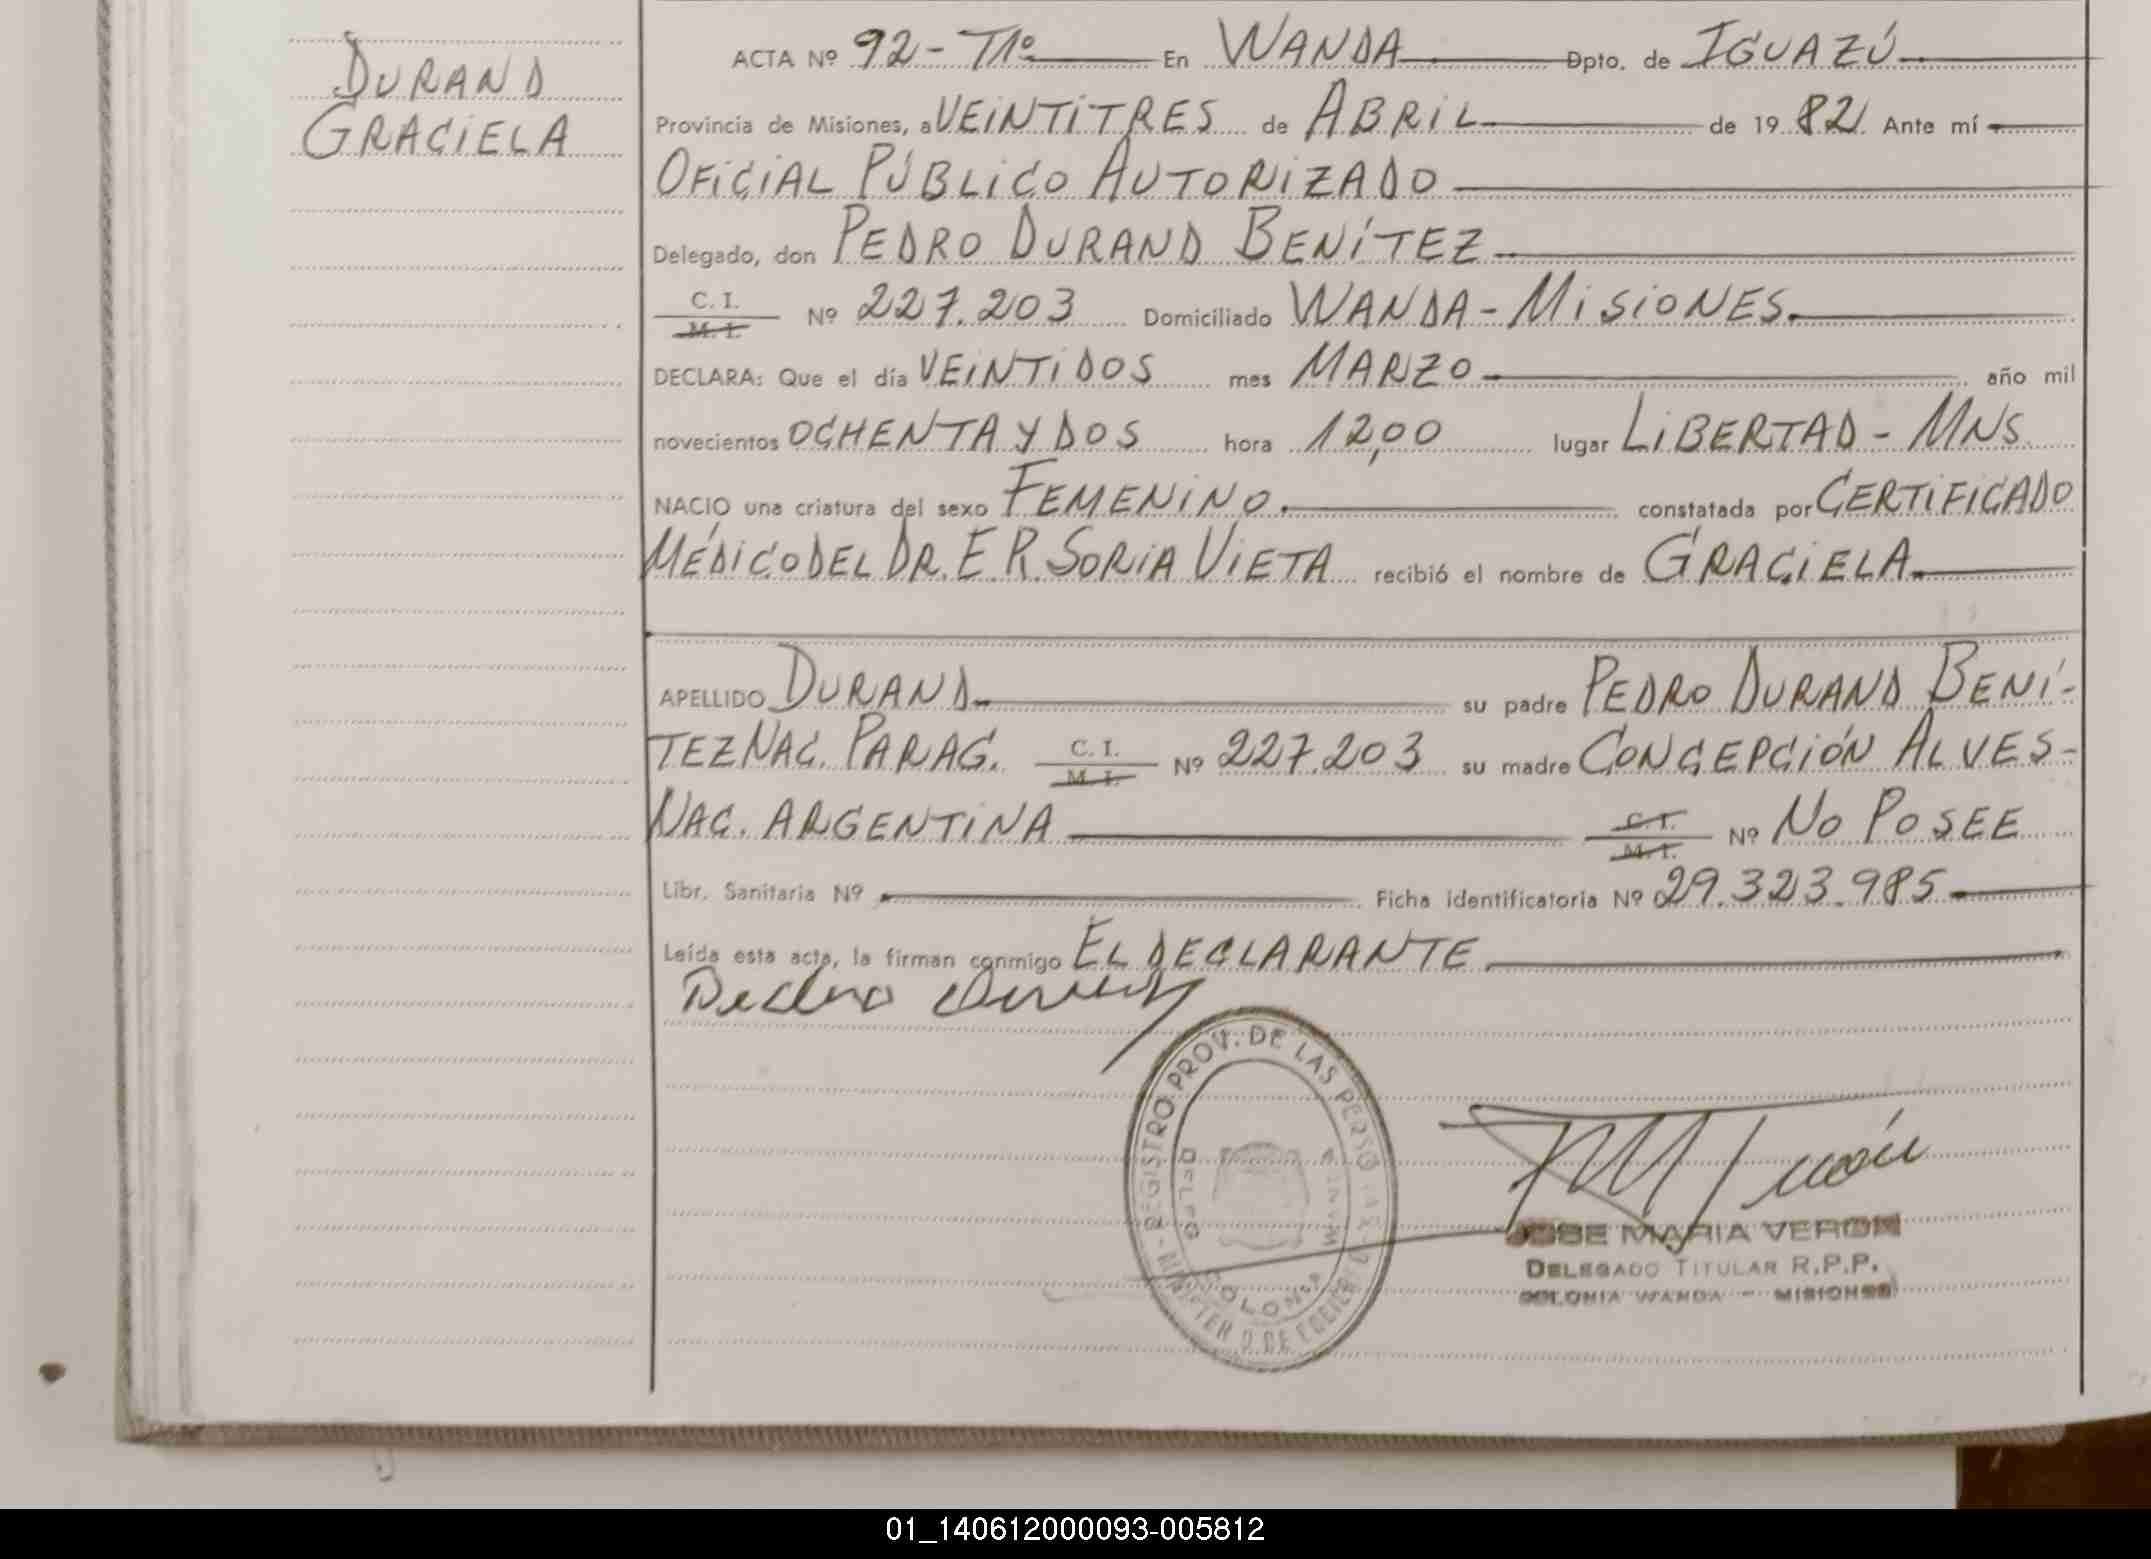 DURAND
GRACIELA
ACTA Nº 92 - T1º En WANDA Dpto. de IGUAZÚ
Provincia de Misiones, a VEINTITRES de ABRIL de 1982 Ante mí
OFICIAL PÚBLICO AUTORIZADO
Delegado, don PEDRO DURAND BENÍTEZ
C. I.
M. I.
Nº 227.203 Domiciliado WANDA - MISIONES
DECLARA: Que el día VEINTIDOS mes MARZO año mil
novecientos OCHENTA Y DOS hora 12,00 lugar LIBERTAD - MNS
NACIO una criatura del sexo FEMENINO. constatada por CERTIFICADO
MÉDICO DEL DR. E. R. SORIA VIETA recibió el nombre de GRACIELA
APELLIDO DURAND su padre PEDRO DURAND BENÍ-
TEZ NAC. PARAG. C. I. M. I. Nº 227.203 su madre CONCEPCIÓN ALVES-
NAC. ARGENTINA C. I. M. I. Nº NO POSEE
Libr. Sanitaria Nº Ficha identificatoria Nº 29.323.985
Leída esta acta, la firman conmigo EL DECLARANTE
Pedro
REGISTRO PROV. DE LAS PERSONAS
DELEG
COLONIA
WANDA
JOSE MARIA VERON
DELEGADO TITULAR R.P.P.
COLONIA WANDA - MISIONES
01_140612000093-005812